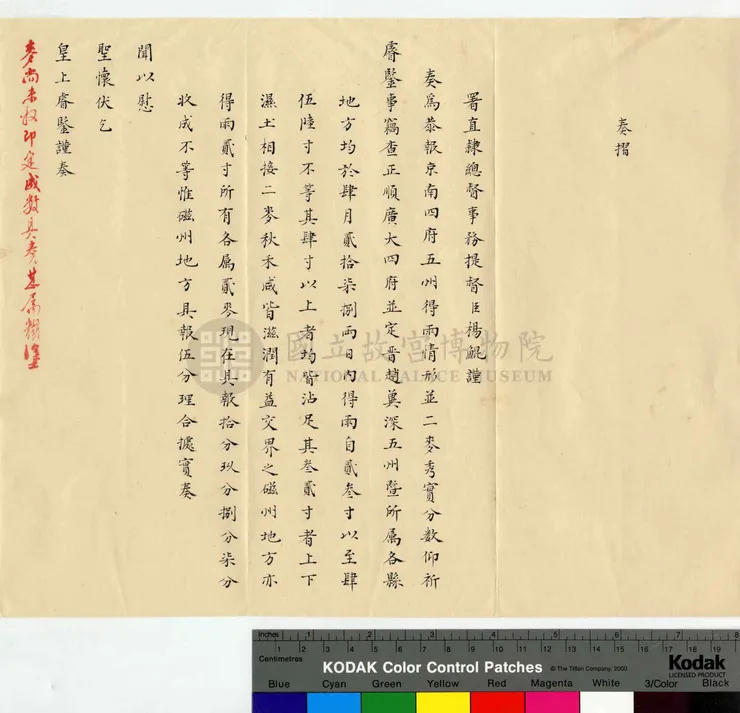 奏摺
署直隸總督事務提督臣楊鯤謹
奏爲恭報京南四府五州得雨情形並二麥秀實分數仰祈
睿鑒事竊查正順廣大四府並定晉趙冀深五州暨所屬各縣
地方均於肆月貳拾柒捌兩日內得雨自貳叁寸以至肆
伍陸寸不等其肆寸以上者均皆沾足其叁貳寸者上下
濕土相接二麥秋禾咸皆滋潤有益交界之磁州地方亦
得雨貳寸所有各属貳麥現在具報拾分玖分捌分柒分
收成不等惟磁州地方具報伍分理合據實奏
聞以慰
聖懷伏乞
皇上睿鑒謹奏
麥尚未收即定成數具奏甚屬糊塗
國立故宮博物院
NATIONAL PALACE MUSEUM
Inches 1 2 3 4 5 6 7 8
Centimetres 1 2 3 4 5 6 7 8 9 10 11 12 13 14 15 16 17 18 19
KODAK Color Control Patches © The Tiffen Company, 2000 Kodak
LICENSED PRODUCT
Blue Cyan Green Yellow Red Magenta White 3/Color Black